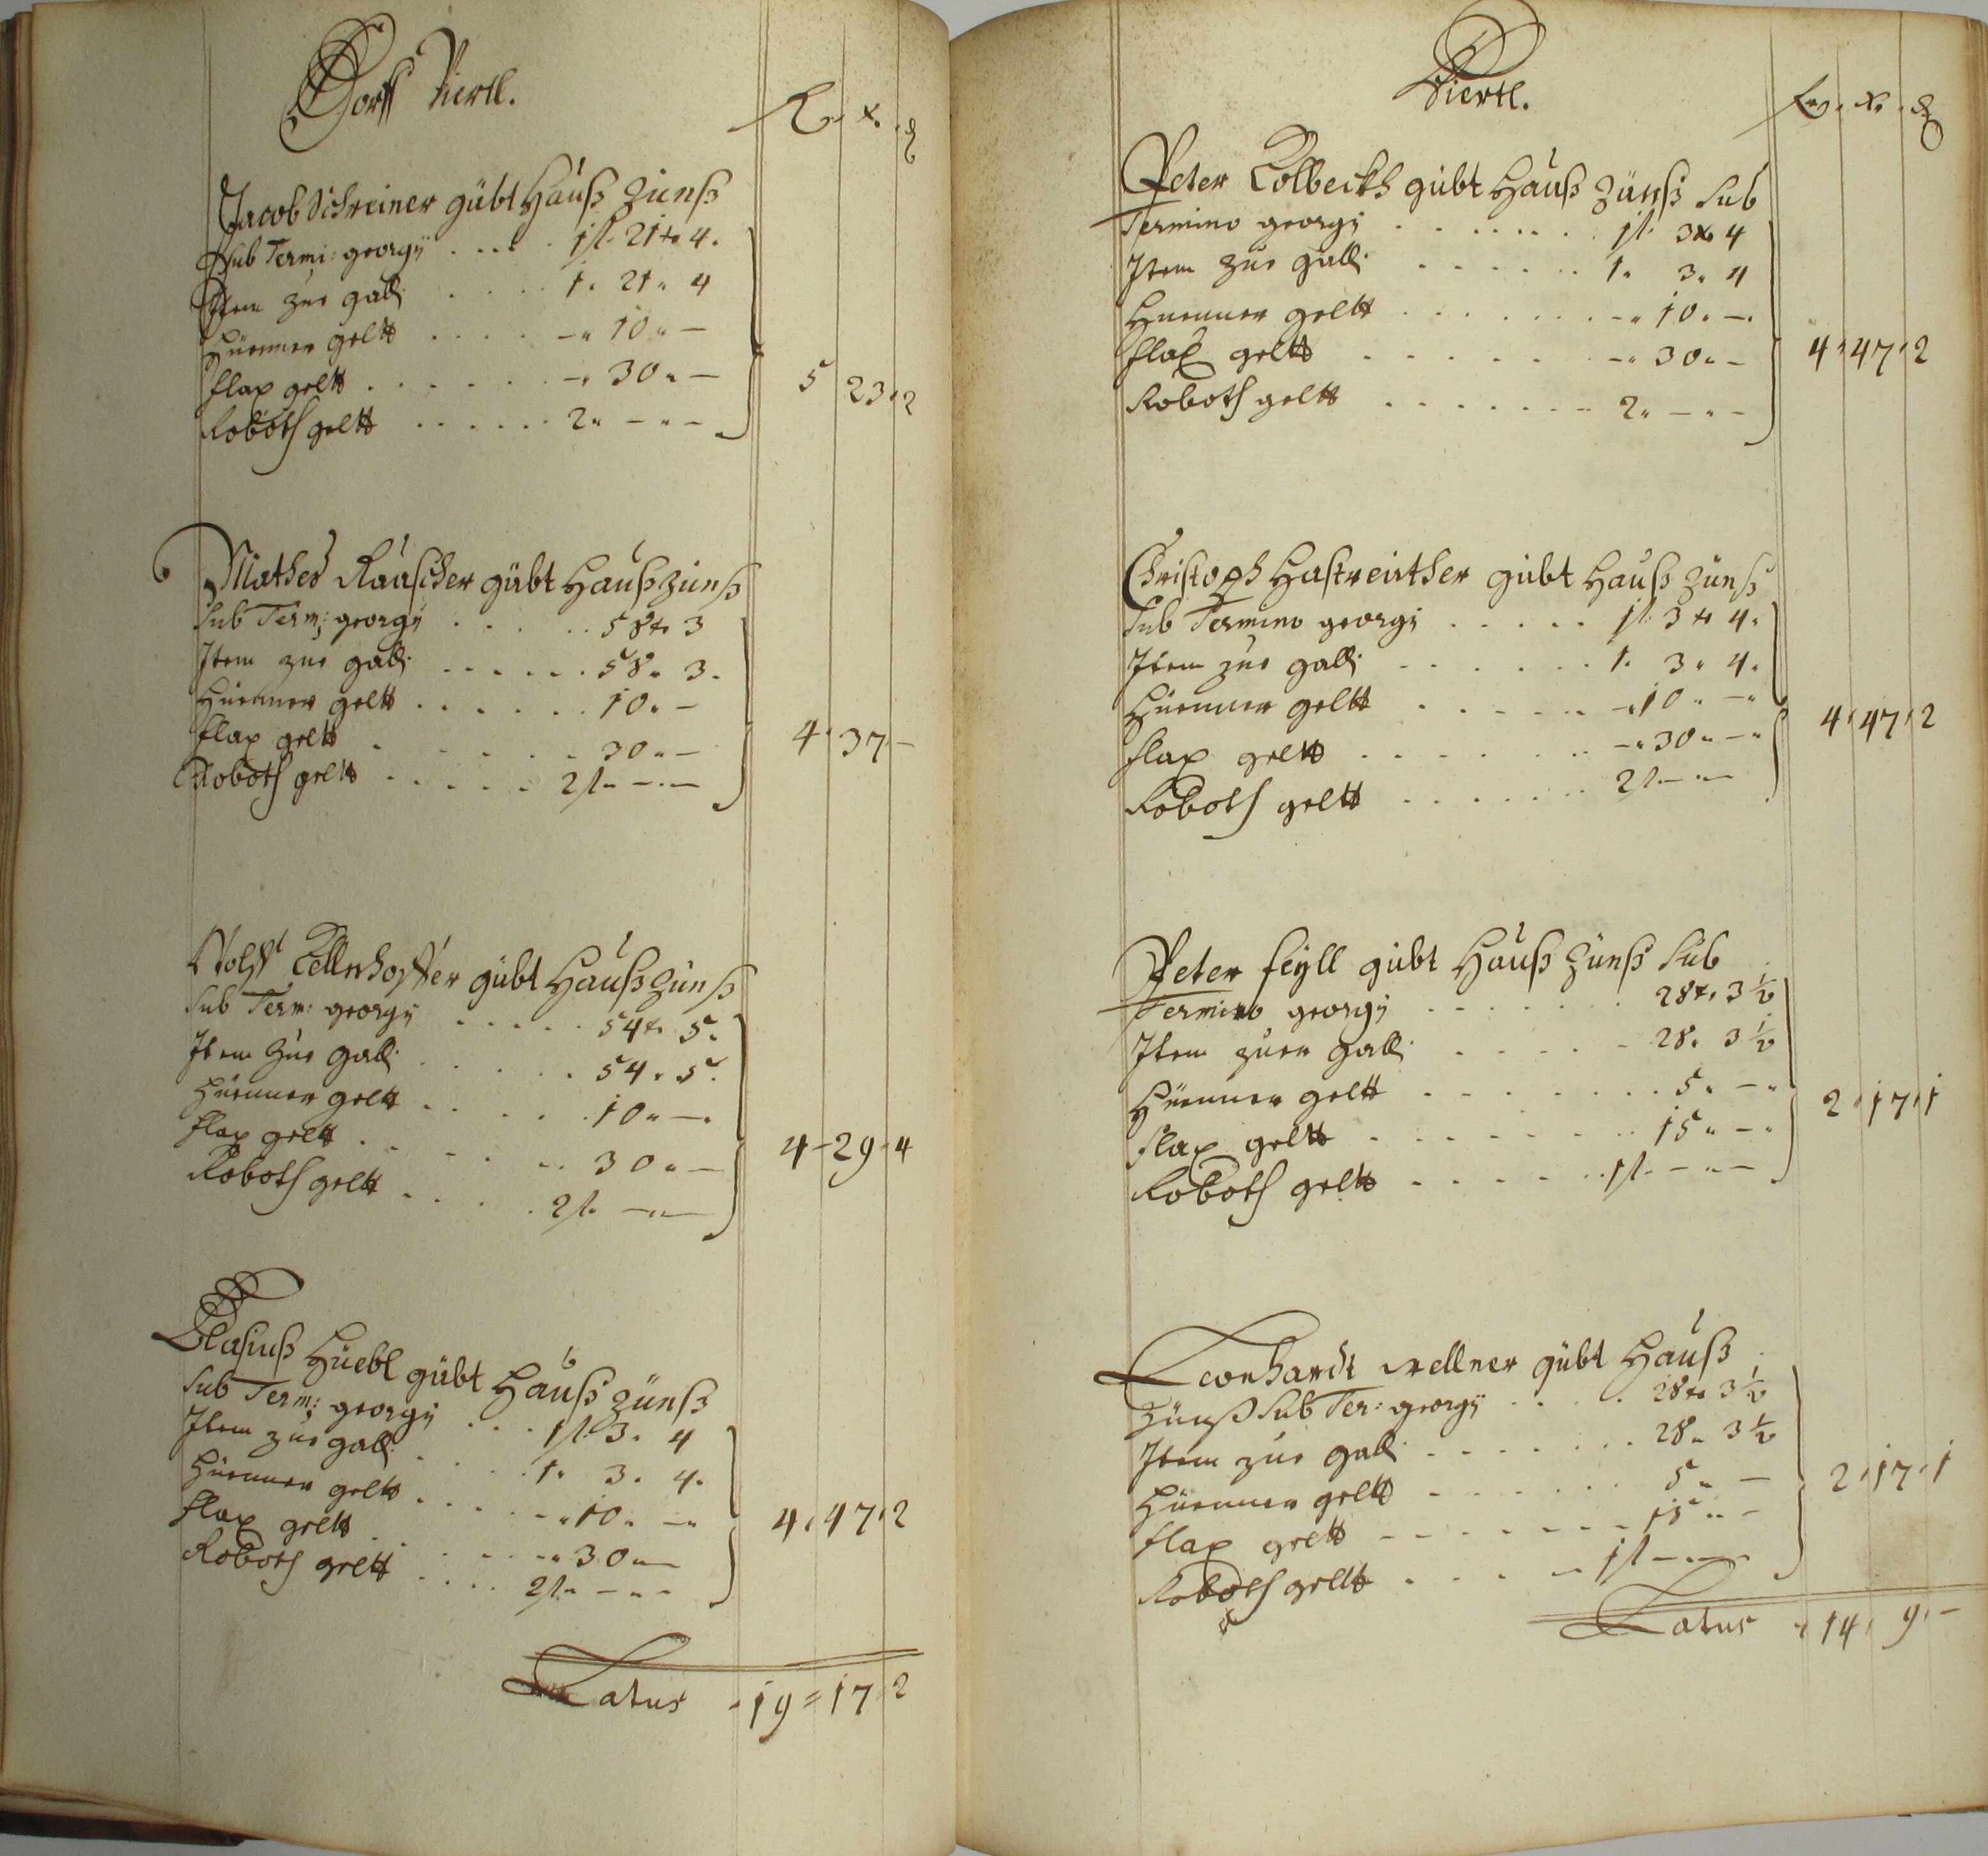 Dorff Viertl.
fl. x. ₰
Jacob Schreiner gübt Hauß Zünß
Sub Termi: georgÿ . . . . 1 fl. 21 x. 4.
Item zue galli . . . . 1. 21. 4
Hüenner geltt . . . . -. 10. -
flax geltt . . . . -. 30. -
Roboth geltt . . . . 2. -. -
5 23. 2
Mathes Rauscher gübt Hauß Zünß
Sub Term: georgÿ . . . . 58 x. 3
Item zue galli . . . . 58. 3.
Hüenner geltt . . . . 10. -
flax geltt . . . . 30. -
Roboth geltt . . . . 2 fl. -. -
4. 37 -
Wolff gübt Hauß Zünß
Sub Term: georgÿ . . . . 54 x. 5.
Item Zue galli . . . . 54. 5.
Hüenner geltt . . . . 10. -.
flax geltt . . . . 30. -
Roboth geltt . . . . 2 fl. -. -
4 - 29 - 4
Blasiuß Hüebl gübt Hauß Zünß
Sub Term: georgÿ . . . 1 fl. 3. 4
Item zue galli . . . . 1. 3. 4.
Hüenner geltt . . . . -. 10. -.
flax geltt . . . . -. 30. -
Roboth geltt . . . . 2 fl. -. -
4. 47. 2
Latus - 19 = 17. 2
Viertl.
fl. x. ₰
Peter Kolbeckh gübt Hauß Zünß Sub
Termino georgÿ . . . . 1 fl. 3 x. 4
Item zue galli . . . . 1. 3. 4
Huenner geltt . . . . -. 10. -.
flax geltt . . . . -. 30. -
Roboth geltt . . . . 2. -. -
4. 47. 2
Christoph Hastreither gübt Hauß Zünß
Sub Termino georgÿ . . . . 1 fl. 3 x. 4.
Item zue galli . . . . 1. 3. 4.
Hüenner geltt . . . . -. 10. -.
flax geltt . . . . -. 30. -.
Roboth geltt . . . . 2 fl. -. -
4. 47. 2
Peter feÿll gübt Hauß Zünß Sub
Termino georgÿ . . . . 28 x. 3 ½
Item zuen galli . . . . 28. 3 ½
Hüenner geltt . . . . 5. -.
flax geltt . . . . 15. -.
Roboth geltt . . . . 1 fl. -. -
2. 17. 1
Leonhardt wellner gübt Hauß
Zünß Sub Ter: georgÿ . . . . 28 x. 3 ½
Item zue galli . . . . 28. 3 ½
Hüenner geltt . . . . 5. -
flax geltt . . . . 15. -
Roboth geltt . . . . 1 fl. -. -
2. 17. 1
Latus . 14. 9. -